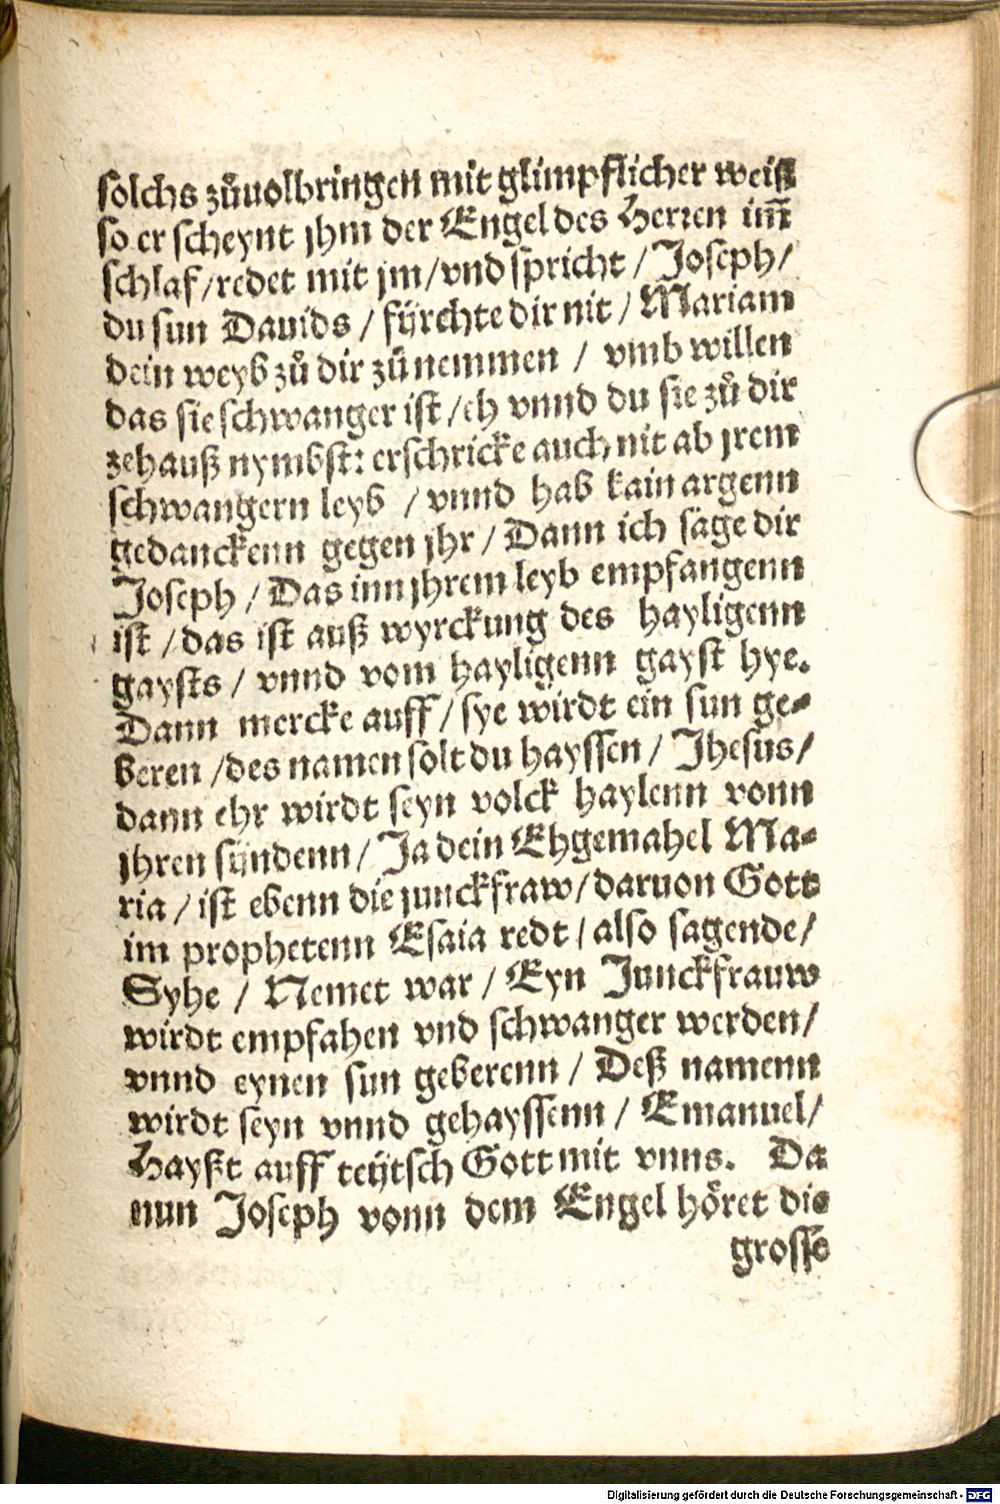 solchs zůuolbringen mit glimpflicher weiß
so er scheynt jhm der Engel des Herren im̃
schlaf/redet mit jm/vnd spricht/Joseph/
du sun Dauids/fürchte dir nit/Mariam
dein weyb zů dir zů nemmen / vmb willen
das sie schwanger ist/eh vnnd du sie zů dir
zehauß nymbst: erschricke auch nit ab jrem
schwangern leyb / vnnd hab kain argenn
gedanckenn gegen jhr/Dann ich säge dir
Joseph/Das inn jhrem leyb empfangenn
ist/das ist auß wyrckung des hayligenn
gaysts/vnnd vom hayligenn gayst hye.
Dann mercke auff/sye wirdt ein sun ge-
beren/des namen solt du hayssen/Jhesus/
dann ehr wirdt seyn volck haylenn vonn
jhren sündenn/Ja dein Ehgemahel Ma-
ria/ist ebenn die junckfraw/daruon Gott
im prophetenn Esaia redt/also sagende/
Syhe / Nemet war/Eyn Junckfrauw
wirdt empfahen vnd schwanger werden/
vnnd eynen sun geberenn/Deß namenn
wirdt seyn vnnd gehayssenn/Emanuel/
Hayßt auff teütsch Gott mit vnns. Da
nun Joseph vonn dem Engel höret die
grosse
Digitalisierung gefördert durch die Deutsche Forschungsgemeinschaft - DFG